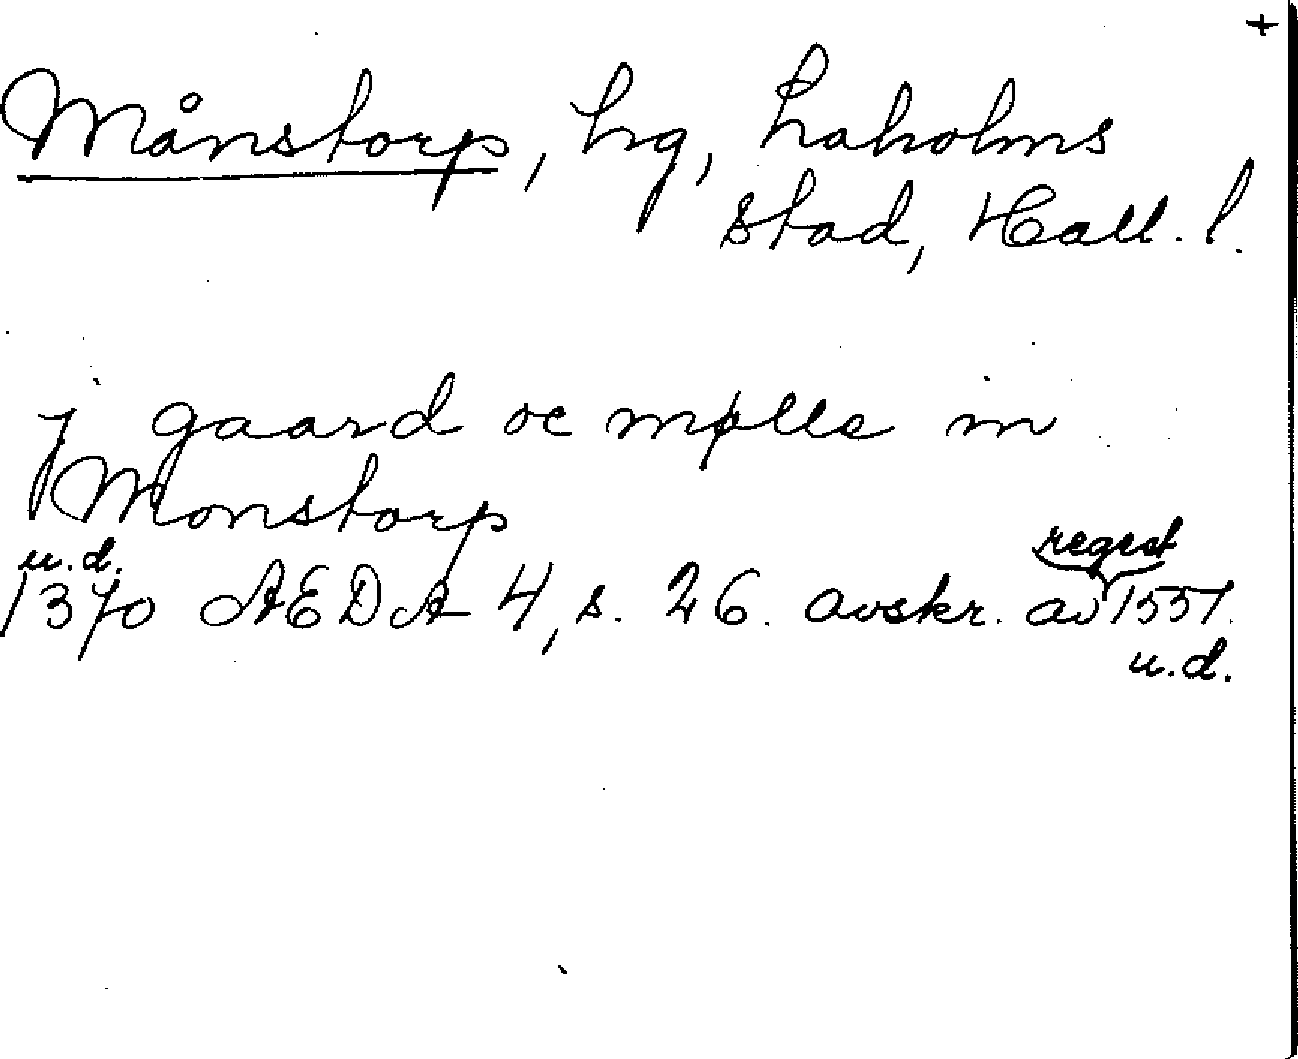 +
Månstorp, hg, Laholms
stad, Hall. l.
j gaard oc mølle in
Monstorp
u.d. regest
1370 AEDA 4, s. 26. avskr. av 1551.
u.d.